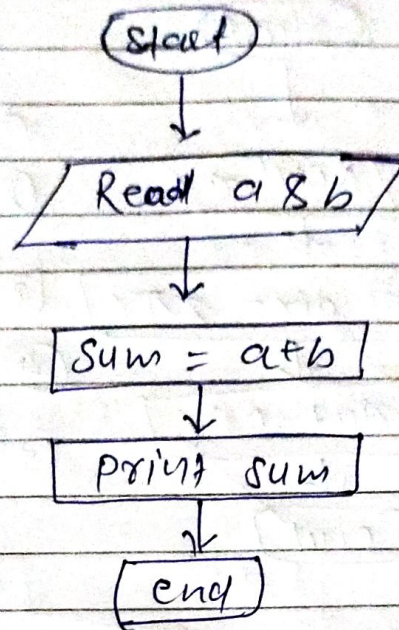 Start
Read a & b
Sum = a+b
print sum
end